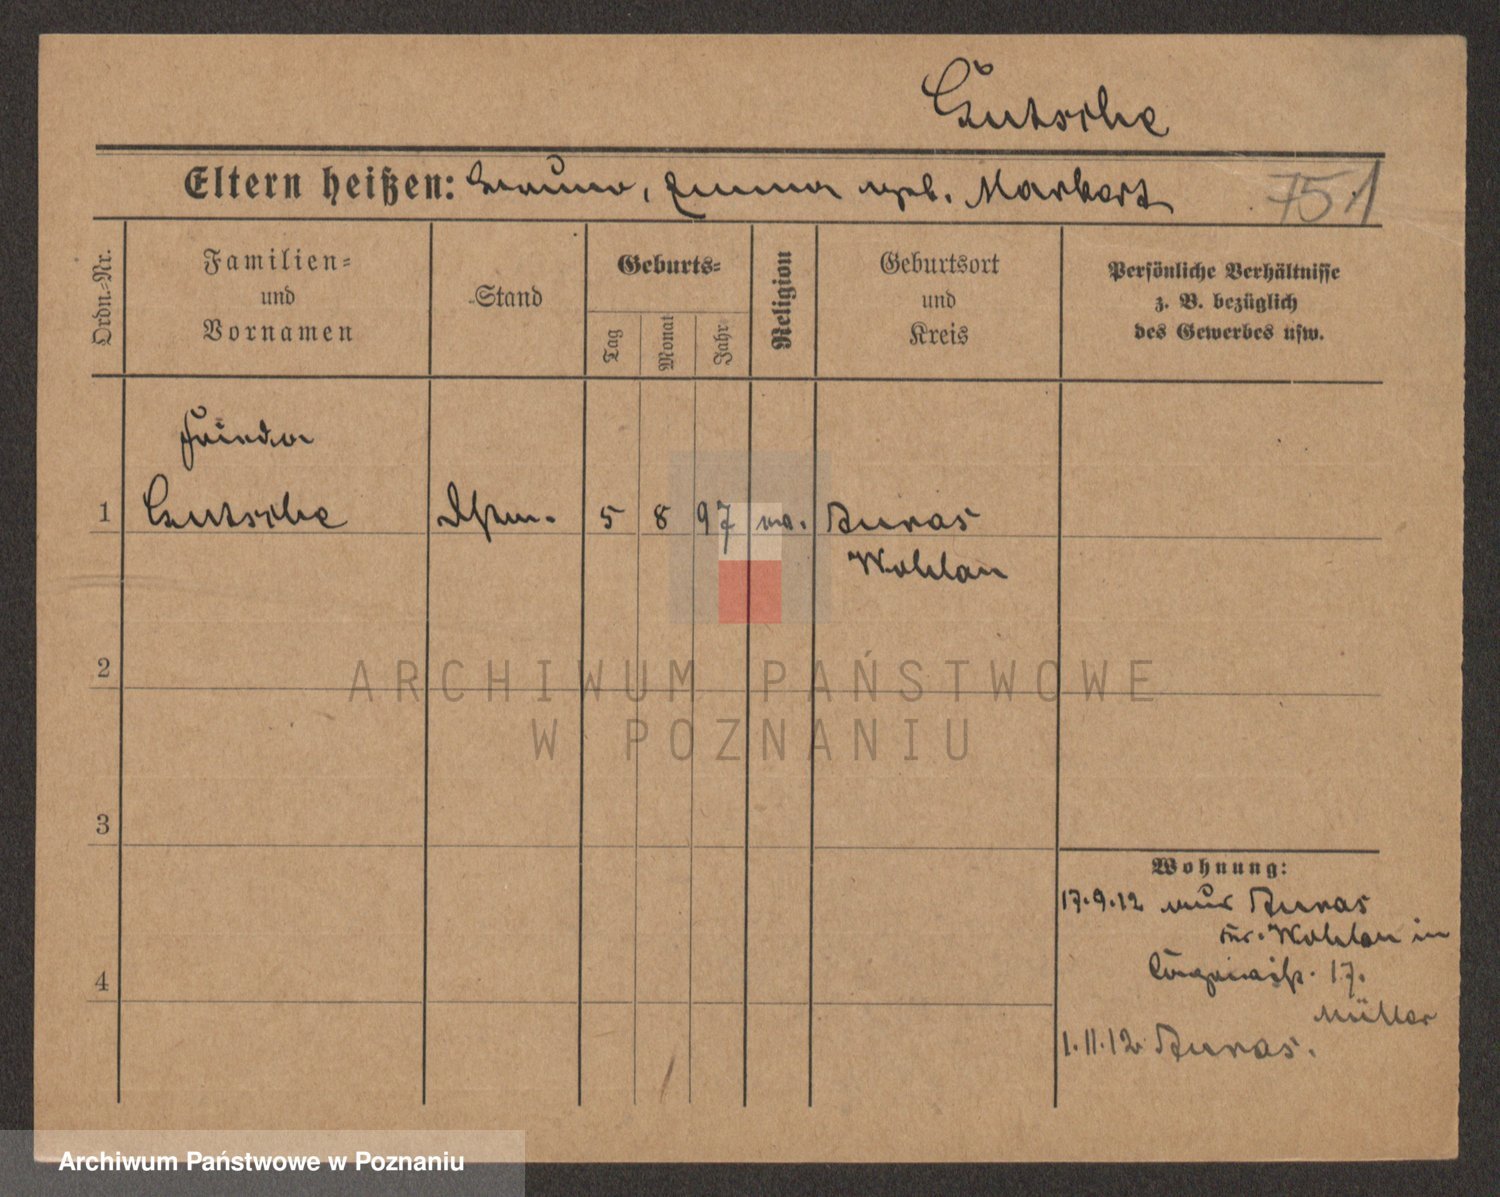 Gutsche
Eltern heißen: Bruno, Emma geb. Markert 751
Ordn.-Nr.
Familien-
und
Vornamen
Stand
Geburts-
Tag
Monat
Jahr
Religion
Geburtsort
und
Kreis
Persönliche Verhältnisse
z. B. bezüglich
des Gewerbes usw.
Frieda
1 Gutsche 5 8 97 Auras
Wohlau
2
3
4
Wohnung:
17.9.12 aus Auras
Kr. Wohlau in
17.
Müller
1.11.12 Auras.
ARCHIWUM PAŃSTWOWE
W POZNANIU
Archiwum Państwowe w Poznaniu